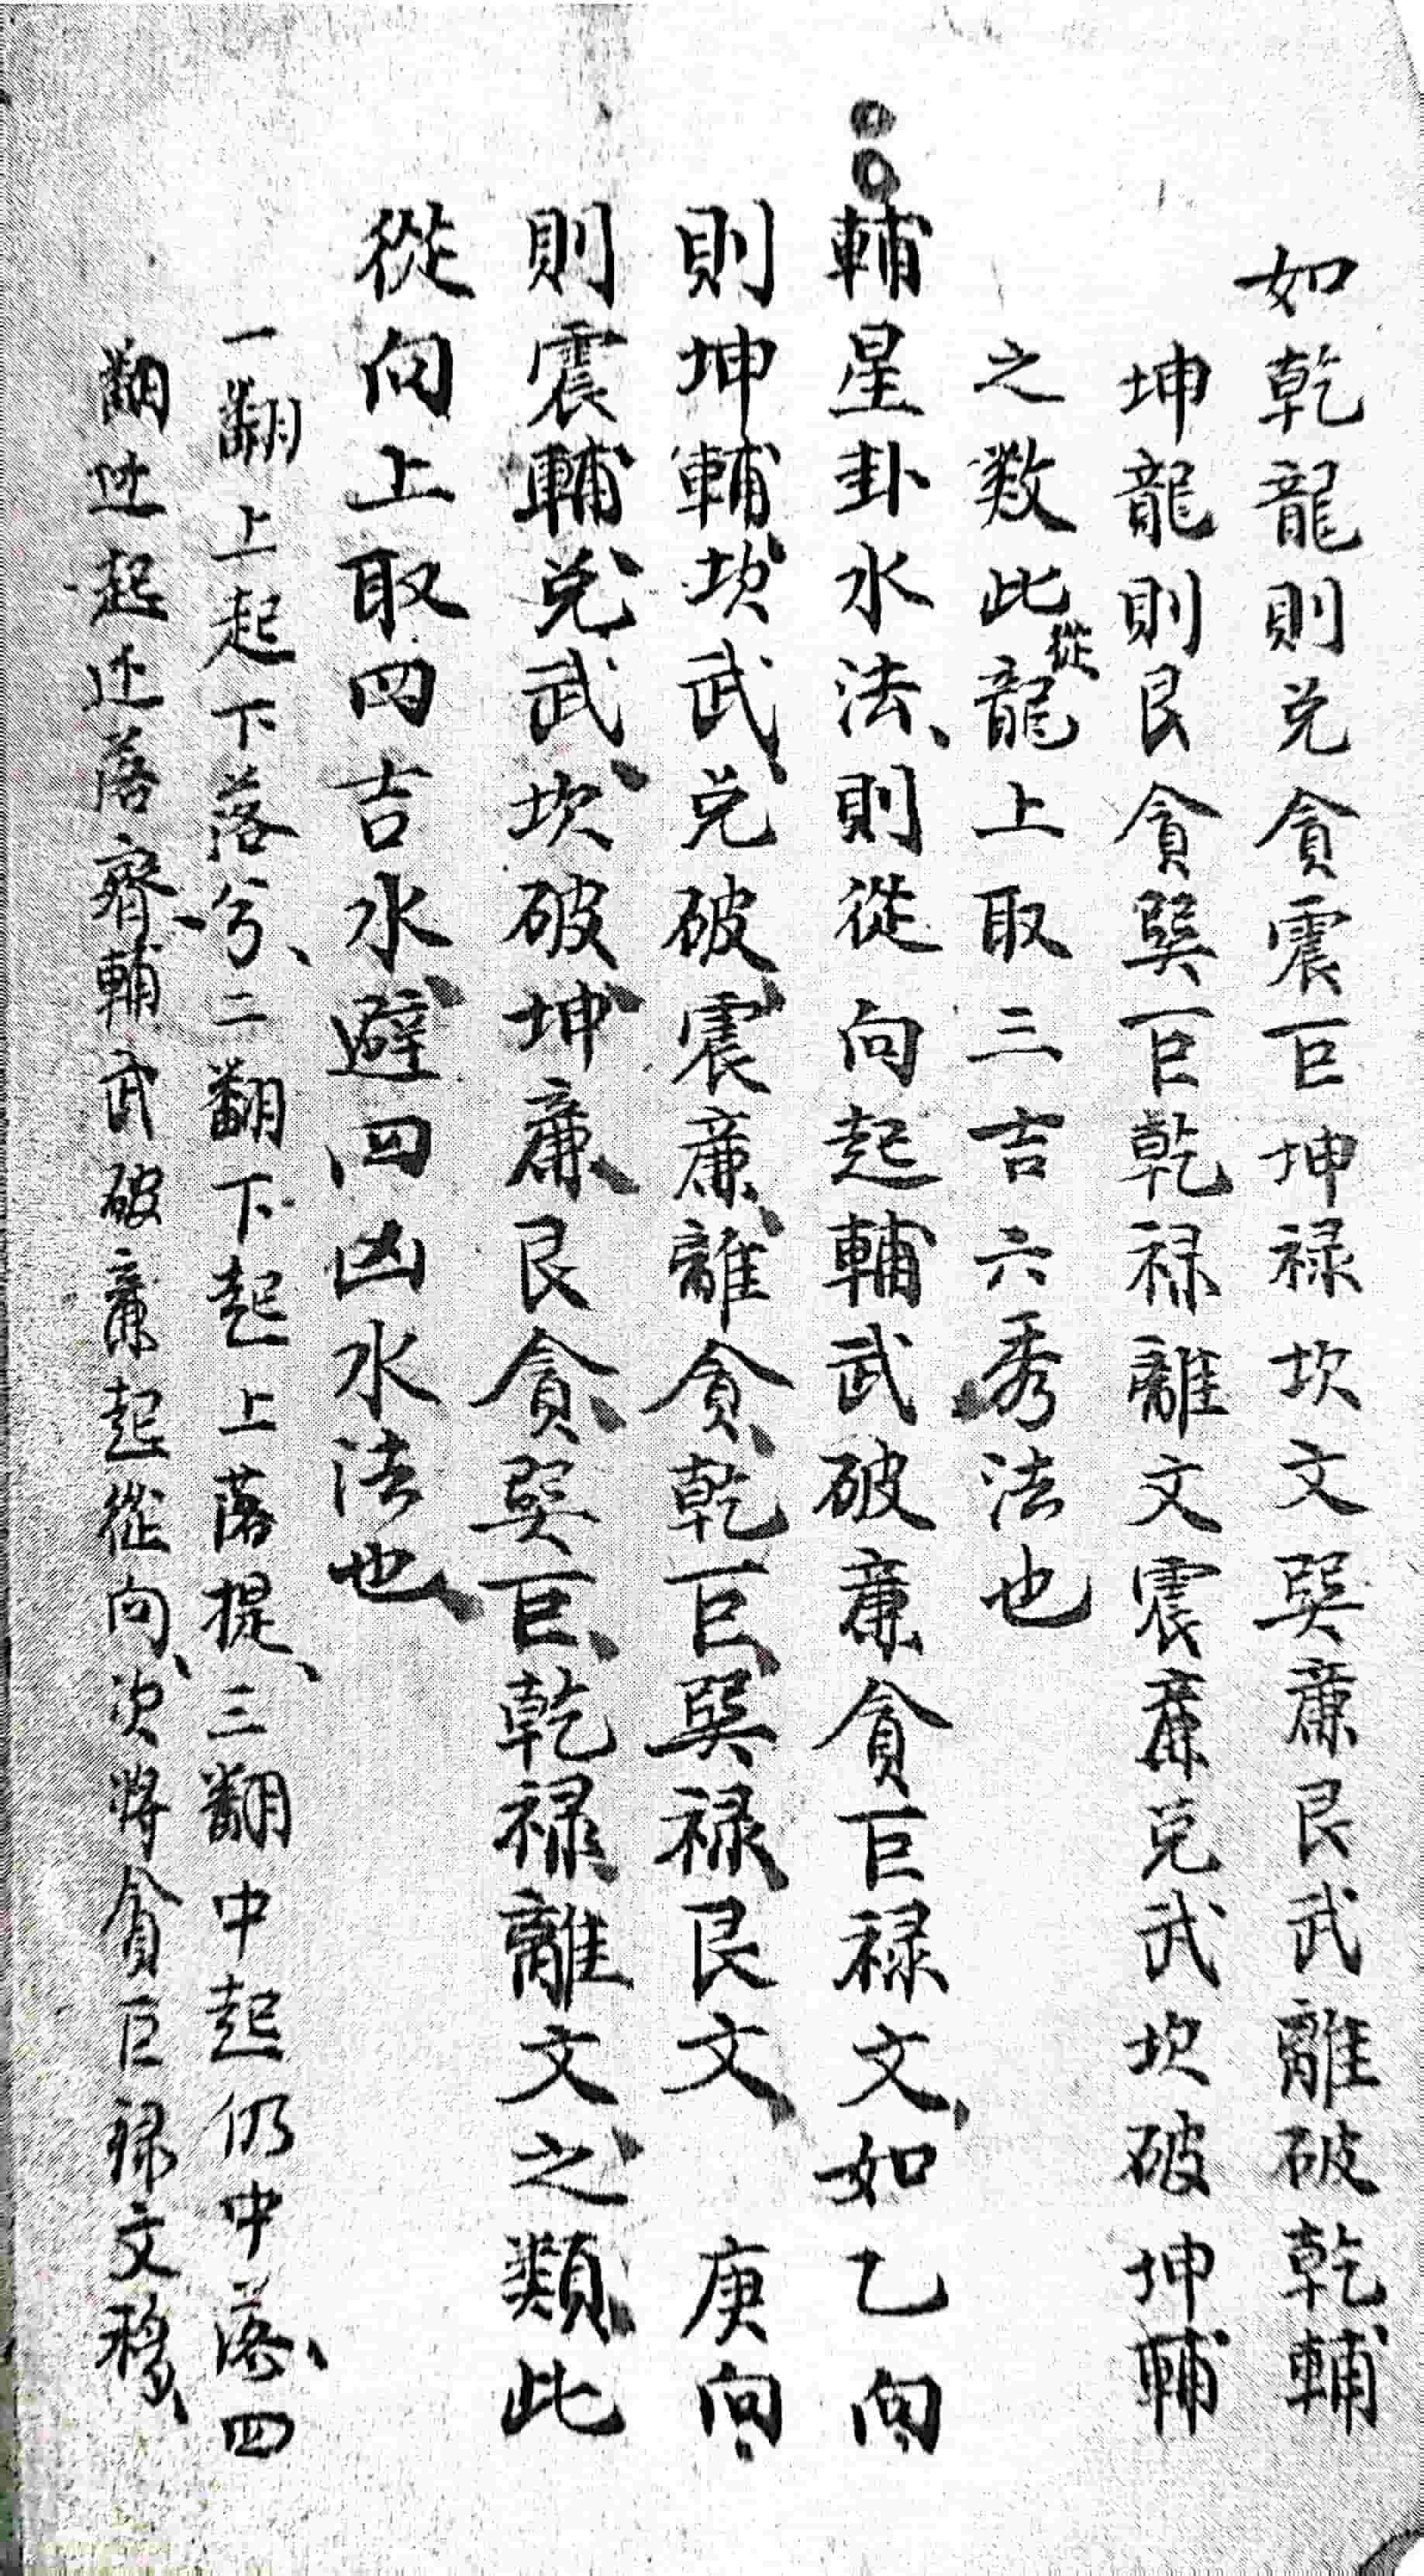 如乾龍則兑貪震巨坤禄坎文巽廉艮武離破乾輔
坤龍則艮貪巽巨乾禄離文震廉兑武坎破坤輔
之数此從龍上取三吉六秀法也
輔星卦水法、則從向起輔武破廉貪巨禄文、如乙向
則坤輔、坎武、兑破、震廉、離貪、乾巨、巽禄、艮文、庚向
則震輔、兑武、坎破、坤廉、艮貪、巽巨、乾禄、離文、之類、此
從向上取四吉水、避四凶水法也、
一翻上起下落兮、二翻下起上落提、三翻中起仍中落、四
翻边起还落齊、輔武破廉起從向、次將貪巨禄文移、